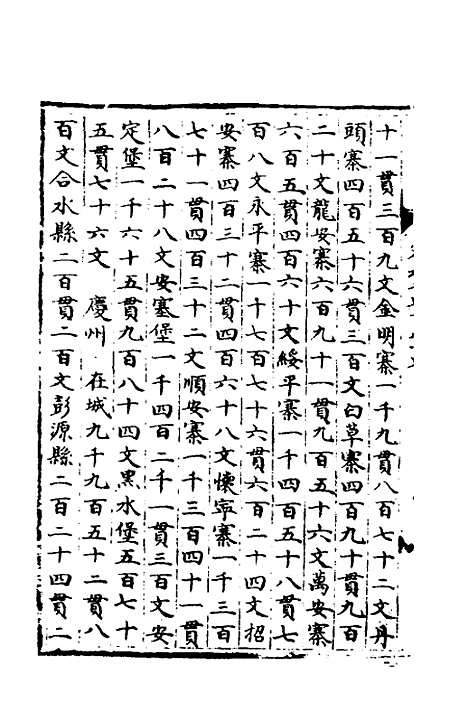 十一貫三百九文金明寨一千九貫八百七十二文丹
頭寨四百五十六貫三百文白草寨四百九十貫九百
二十文龍安寨六百九十一貫九百五十六文萬安寨
六百五貫四百六十文綏平寨一千四百五十八貫七
百八文永平寨一千七百七十六貫六百二十四文招
安寨四百三十二貫四百六十八文懷寧寨一千三百
七十一貫四百三十二文順安寨一千三百四十一貫
八百二十八文安塞堡一千四百二千一貫三百文安
定堡一千六十五貫九百八十四文黑水堡五百七十
五貫七十六文 慶州 在城九千九百五十二貫八
百文合水縣二百貫二百文彭源縣二百二十四貫二